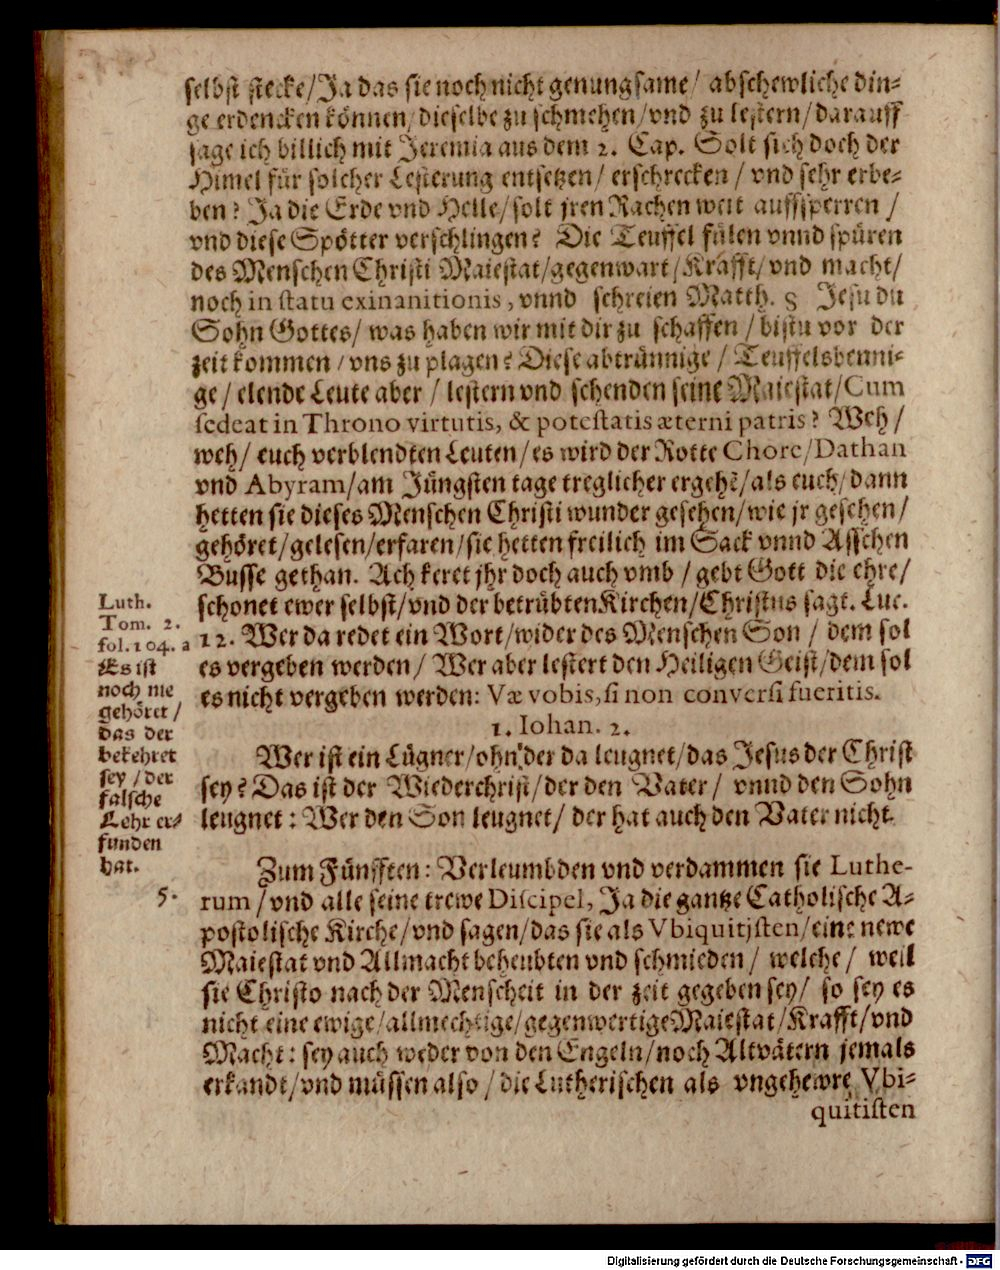 selbst stecke/Ja das sie noch nicht genungsame/ abschewliche din-
ge erdencken können/ dieselbe zu schmehen/vnd zu lestern/darauff
sage ich billich mit Jeremia aus dem 2. Cap. Solt sich doch der
Himel für solcher Lesterung entsetzen/ erschrecken / vnd sehr erbe-
ben? Ja die Erde vnd Helle/solt jren Rachen weit auffsperren /
vnd diese Spötter verschlingen? Die Teuffel fülen vnnd spüren
des Menschen Christi Maiestat/gegenwart/Krafft/vnd macht/
noch in statu exinanitionis, vnnd schreien Matth. 8 Jesu du
Sohn Gottes/ was haben wir mit dir zu schaffen / bistu vor der
zeit kommen / vns zu plagen? Diese abtrünnige / Teuffelsbenni-
ge / elende Leute aber / lestern vnd schenden seine Maiestat/Cum
sedeat in Throno virtutis, & potestatis æterni patris? Weh /
weh/ euch verblendten Leuten/es wird der Rotte Chore/Dathan
vnd Abyram/am Jüngsten tage treglicher ergehē/als euch/dann
hetten sie dieses Menschen Christi wunder gesehen/wie jr gesehen/
gehöret/gelesen/erfaren/sie hetten freilich im Sack vnnd Asschen
Busse gethan. Ach keret jhr doch auch vmb / gebt Gott die ehre/
schonet ewer selbst/vnd der betrübten Kirchen/Christus sagt. Luc.
12. Wer da redet ein Wort/wider des Menschen Son / dem sol
es vergeben werden/ Wer aber lestert den Heiligen Geist/dem sol
es nicht vergeben werden: Væ vobis, si non conversi fueritis.
1. Iohan. 2.
Wer ist ein Lügner/ohn' der da leugnet/das Jesus der Christ
sey? Das ist der Wiederchrist/der den Vater/ vnnd den Sohn
leugnet: Wer den Son leugnet/ der hat auch den Vater nicht.
Luth.
Tom. 2.
fol. 104. a
Es ist
noch nie
gehöret /
das der
bekehret
sey / der
falsche
Lehr er-
funden
hat.
5.
Zum Fünfften: Verleumbden vnd verdammen sie Luthe-
rum/vnd alle seine trewe Discipel, Ja die gantze Catholische A-
postolische Kirche/vnd sagen/das sie als Vbiquitjsten/eine newe
Maiestat vnd Allmacht beheubten vnd schmieden/ welche/ weil
sie Christo nach der Menscheit in der zeit gegeben sey/ so sey es
nicht eine ewige/allmechtige/gegenwertige Maiestat/Krafft/vnd
Macht: sey auch weder von den Engeln/noch Altvätern jemals
erkandt/vnd müssen also / die Lutherischen als vngehewre Vbi-
quitisten
Digitalisierung gefördert durch die Deutsche Forschungsgemeinschaft - DFG